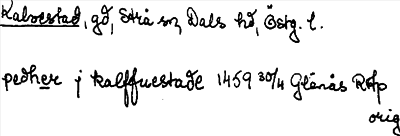 Kalvestad, gd, Strå sn, Dals hd, Östg. l.
pedher j kalffuestade 1459 30/4 Glänås Rep
orig